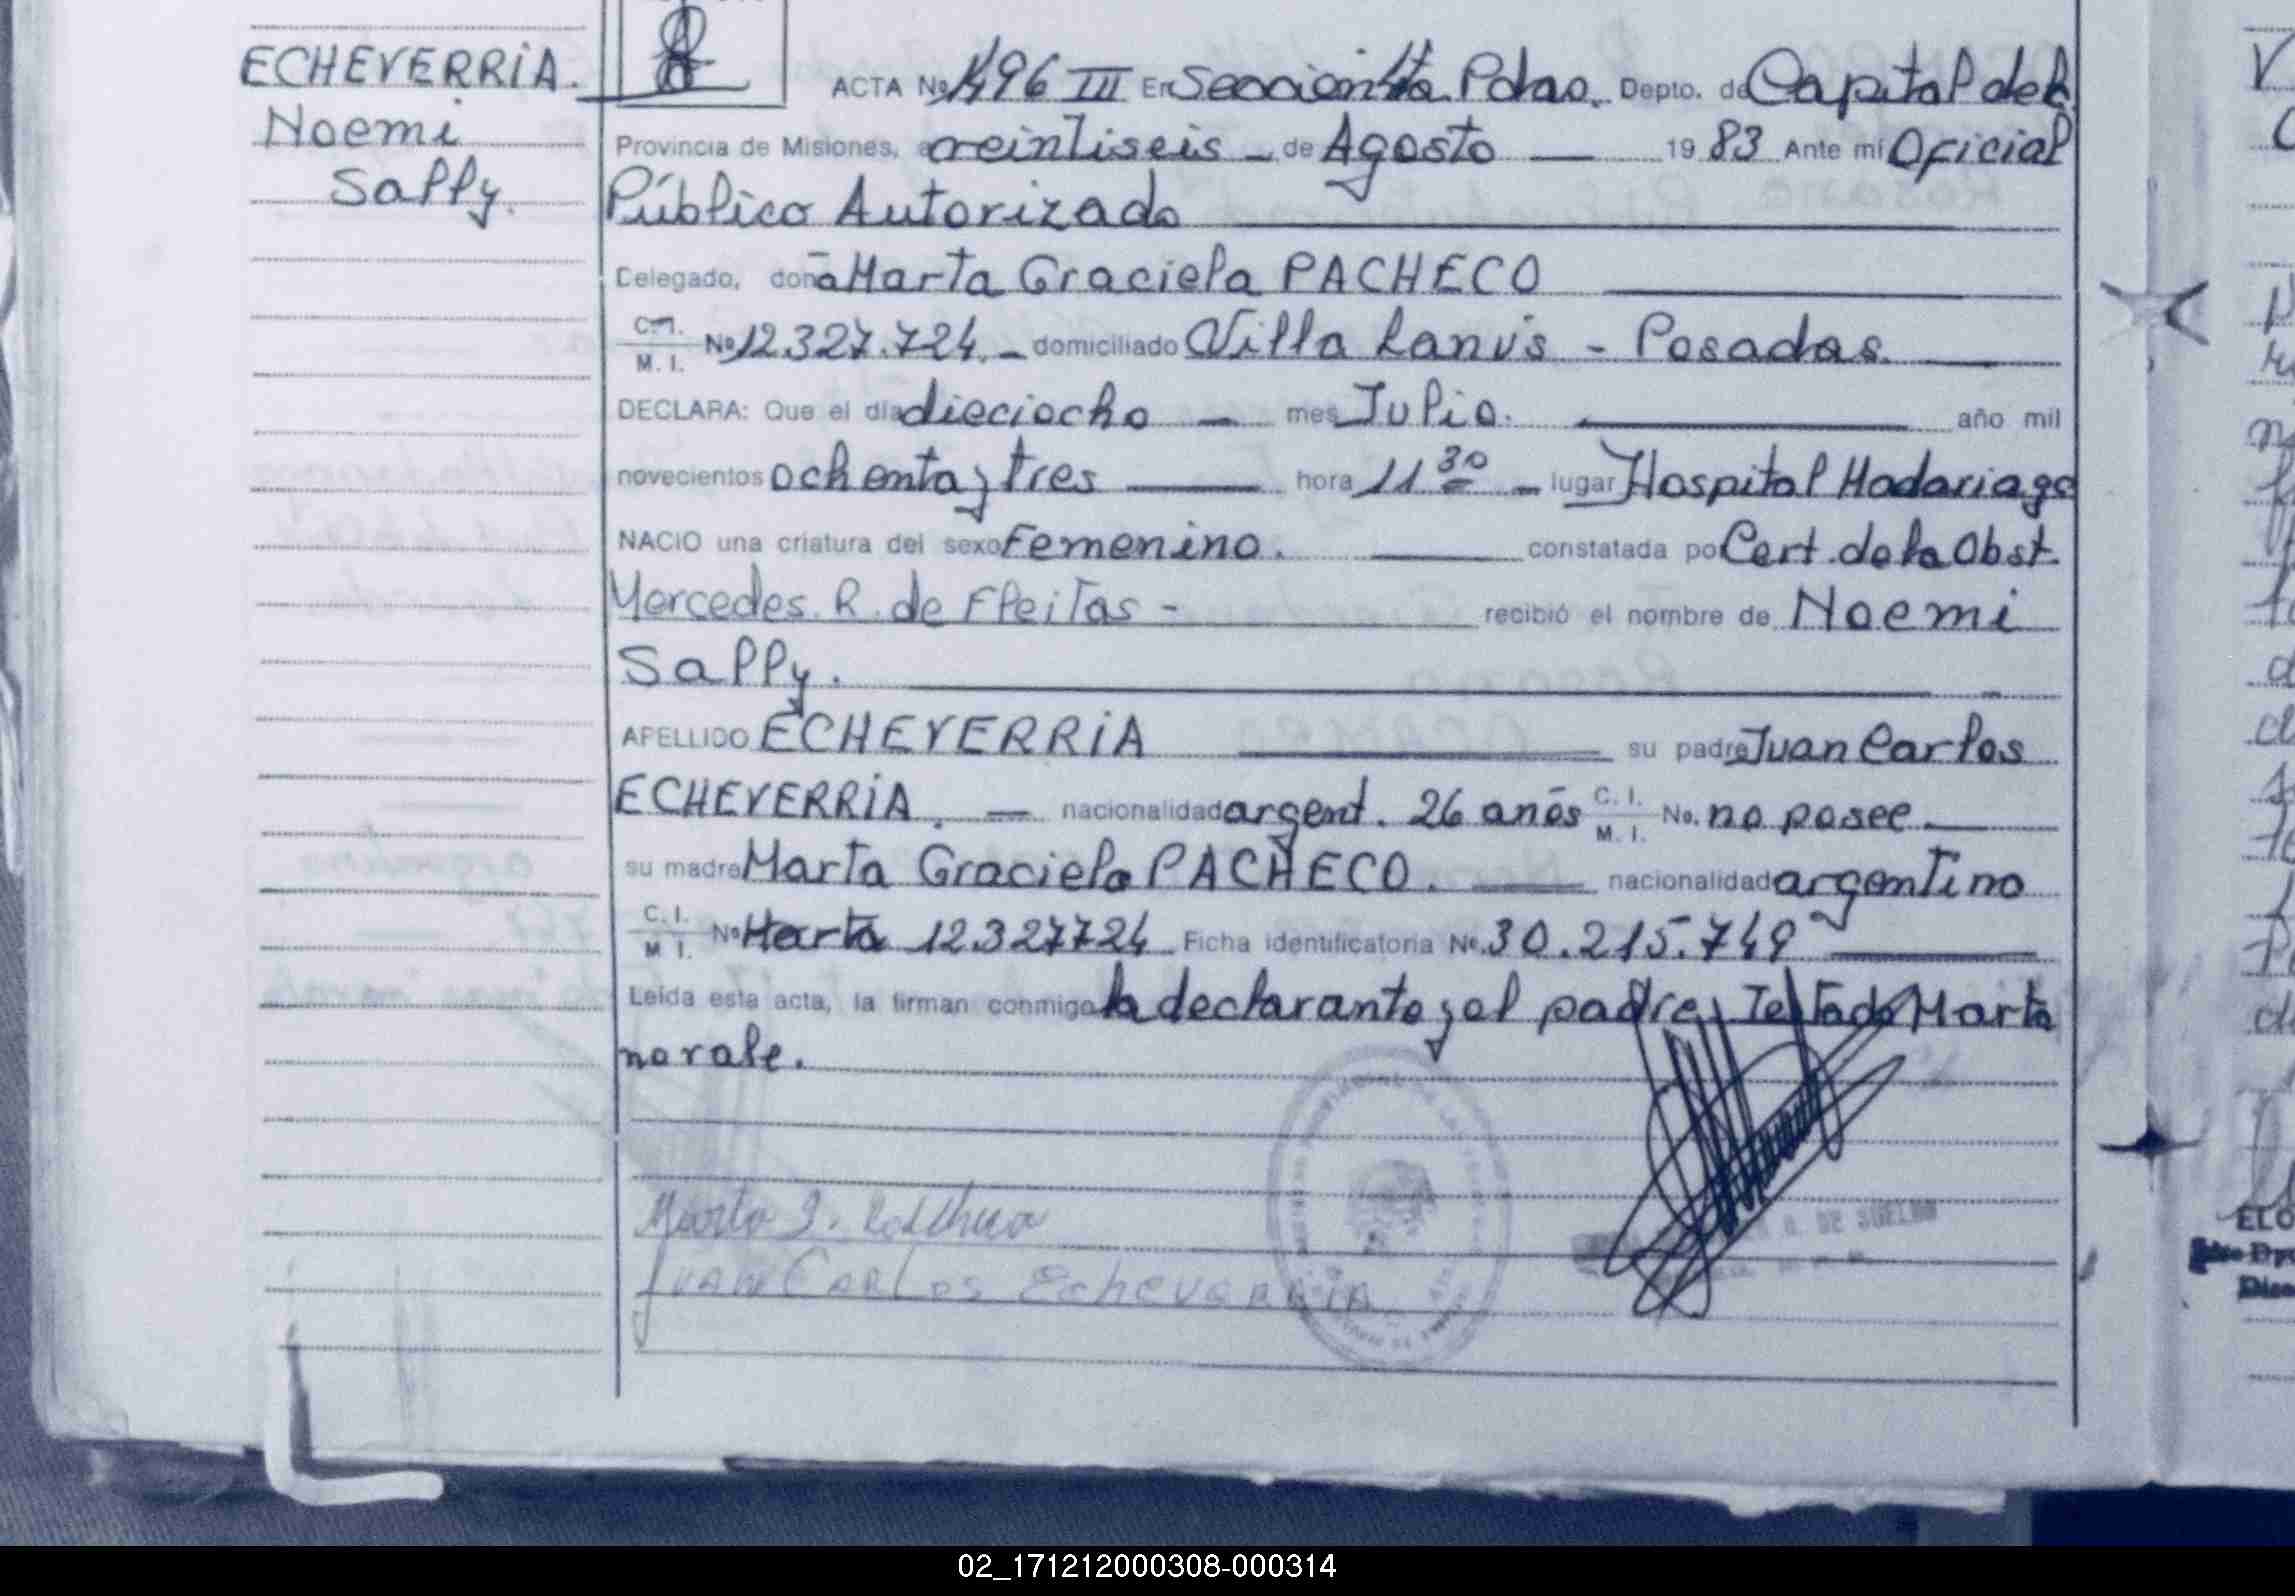 ECHEVERRIA.
Noemi
Sally.
ACTA No 1496 III En Sección 4ta Pdas. Depto. de Capital de la
Provincia de Misiones, a veintiseis - de Agosto — 19 83 Ante mí Oficial
Público Autorizado
Delegado, doña Marta Graciela PACHECO
C.I. M. I. No 12.327.724. - domiciliado Villa Lanús - Posadas.
DECLARA: Que el día dieciocho — mes Julio. — año mil
novecientos ochenta y tres — hora 11 30 - lugar Hospital Madariaga
NACIO una criatura del sexo Femenino. — constatada por Cert. de la Obst.
Mercedes. R. de Fleitas - recibió el nombre de Noemi
Sally.
APELLIDO ECHEVERRIA — su padre Juan Carlos
ECHEVERRIA. — nacionalidad argent. 26 años C. I. M. I. No. no posee —
su madre Marta Graciela PACHECO. — nacionalidad argentino
C. I. M I. No Marta 12.327724 Ficha identificatoria No. 30.215.749 —
Leída esta acta, la firman conmigo la declarante y el padre, Testado Marta
no vale.
Juan Carlos Echevarria
DE
02_171212000308-000314